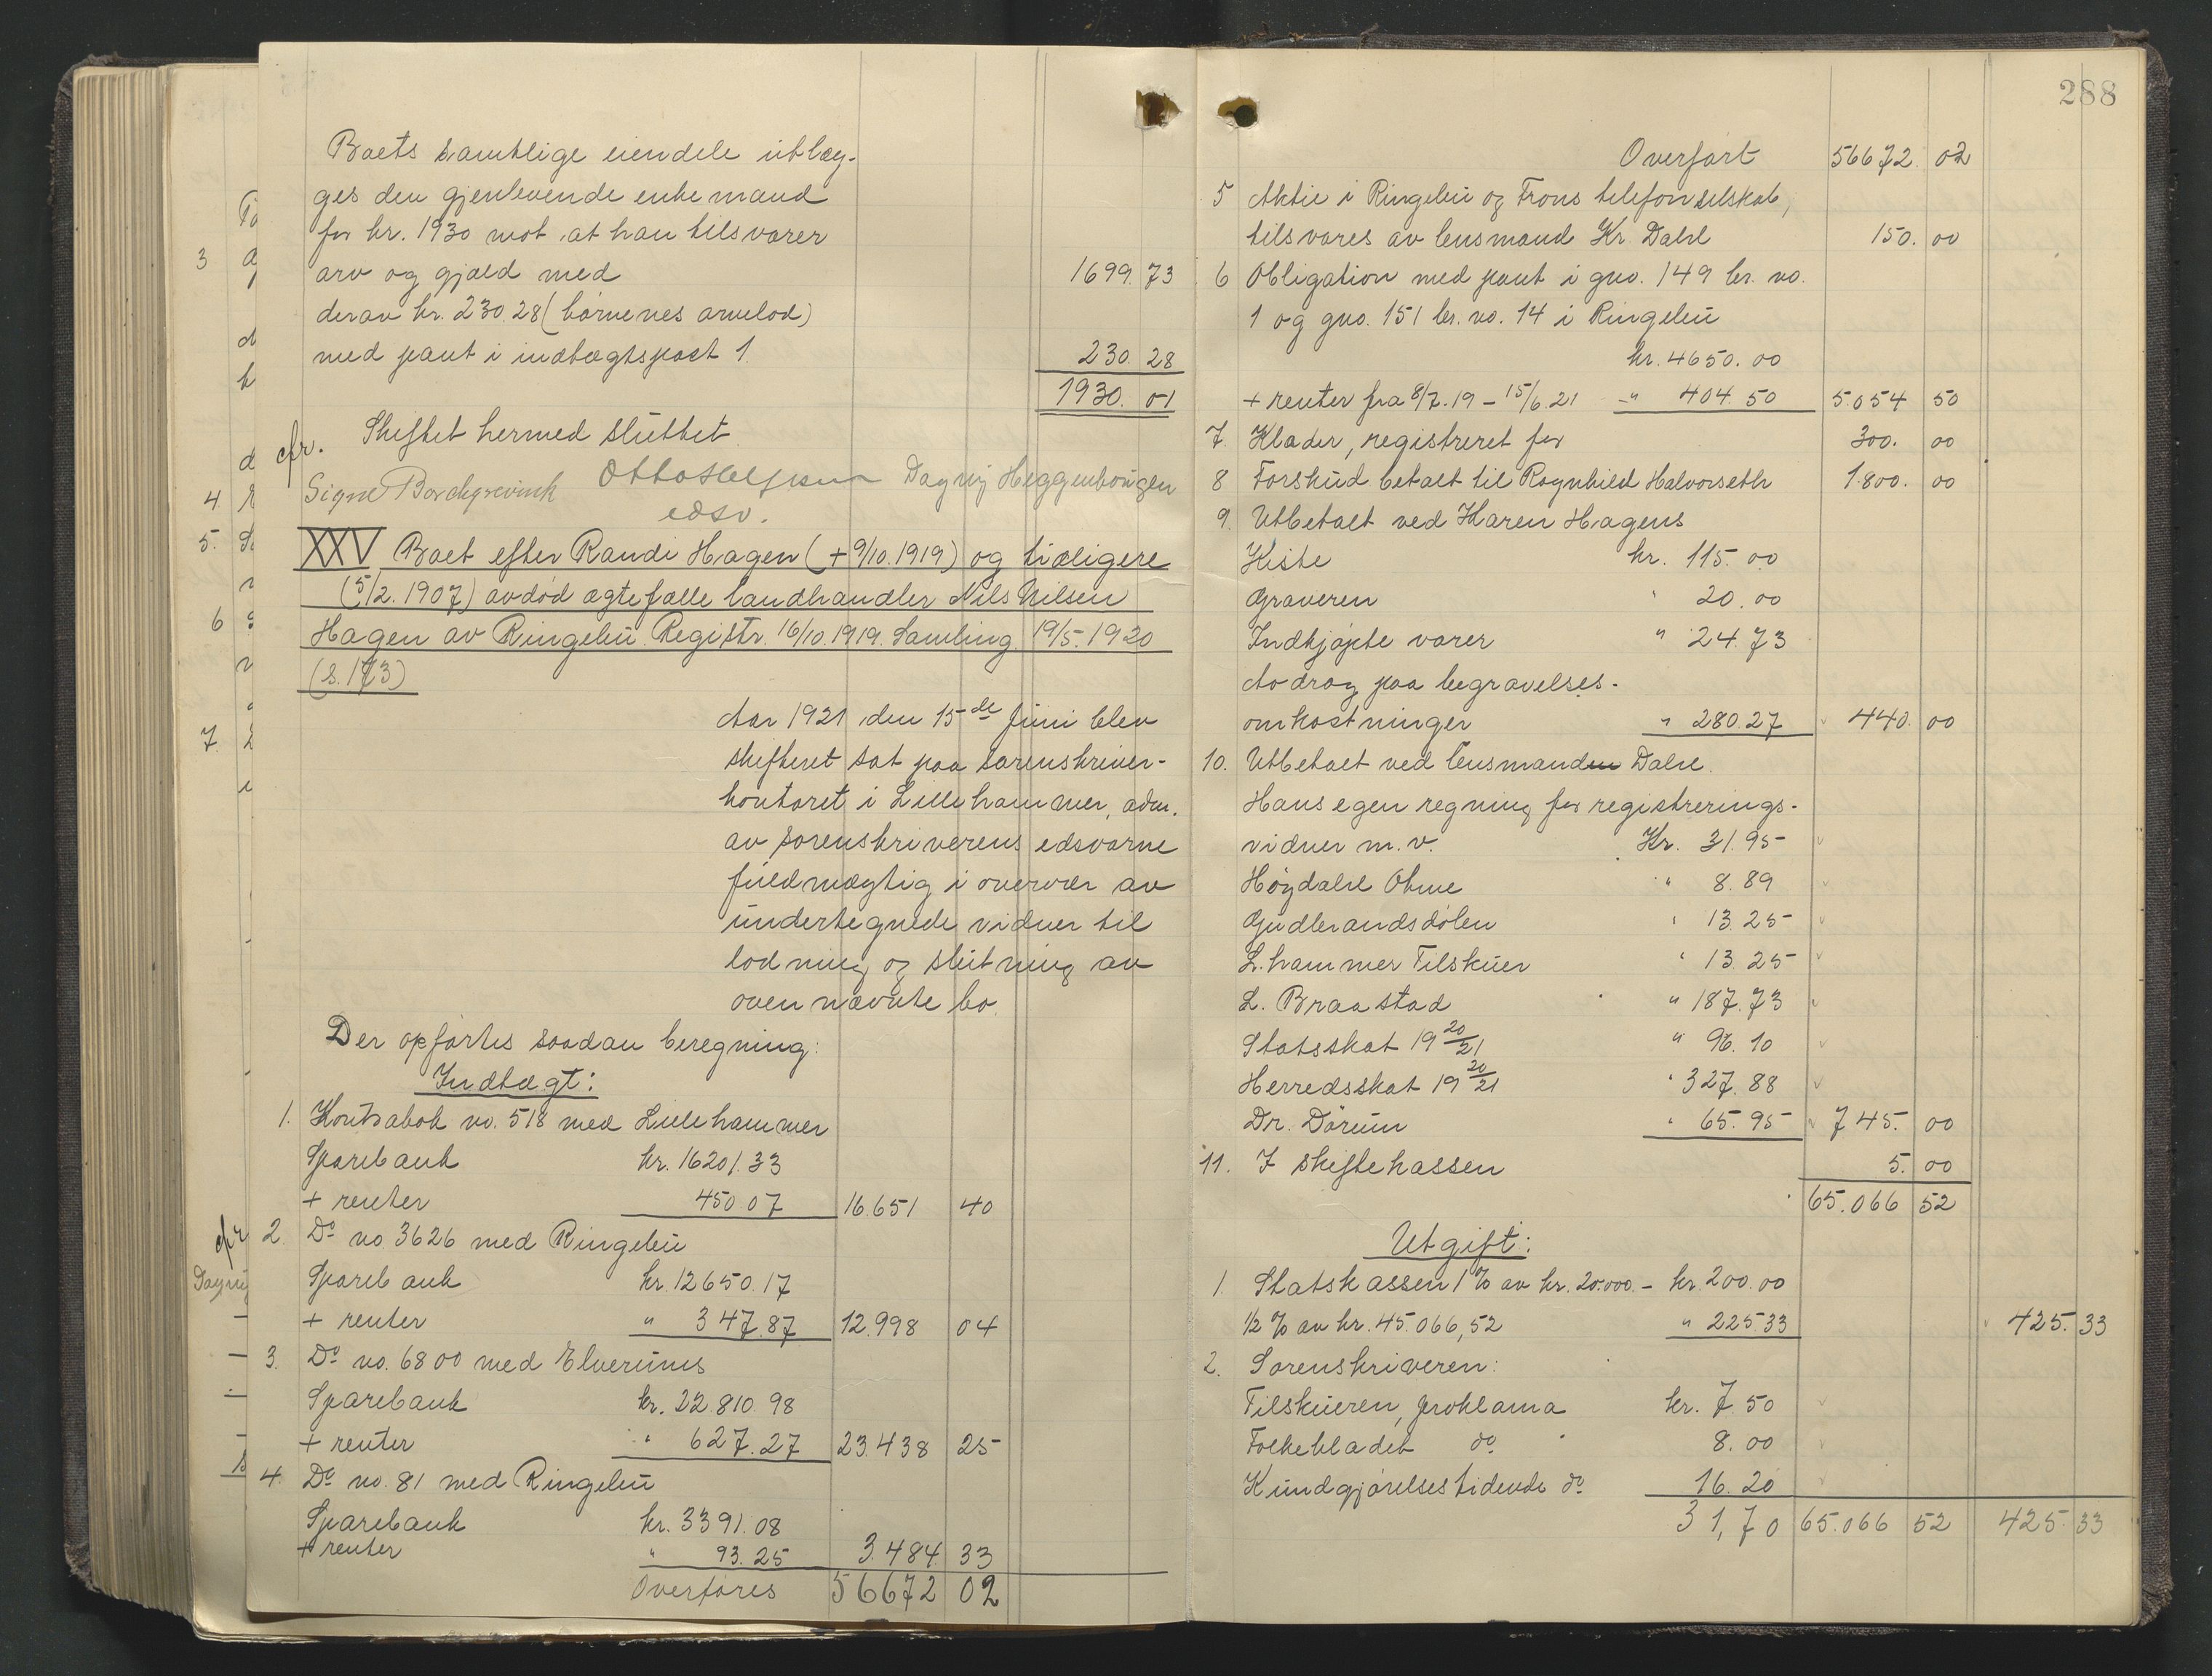 Boets samtlige eiendele utlæg-
ges den gjenlevende enkemand
for kr. 1930 mot at han tilsvarer
arv og gjæld med 1699. 73
derav kr. 230.28 (børnenes arvelod)
med pant i indtægtspost 1. 230. 28
1930. 01
cfr. Skiftet hermed sluttet.
Signe Borchgrevink Dagny Heggenhougen
edsv.
XXV Boet efter Randi Hagen (+ 9/10.1919) og tidligere
(5/2.1907) avdød ægtefælle landhandler Nils Nilsen
Hagen av Ringebu. Registr. 16/10.1919. Samling 19/5-1920
(s. 173)
Aar 1921 den 15de juni blev
skifteret sat paa sorenskriver-
kontoret i Lillehammer, adm.
av sorenskriverens edsvorne
fuldmægtig i overvær av
undertegnede vidner til
lodning og slutning av
ovennævnte bo.
Der opførtes saadan beregning:
Indtægt:
1. Kontrabok no. 518 med Lillehammer
Sparebank kr. 16201.33
+ renter 450.07 16.651 40
cfr 2. Do no. 3626 med Ringebu
Sparebank kr. 12650.17
+ renter " 347.87 12.998 04
3. Do no. 6800 med Elverums
Sparebank kr. 22.810.98
+ renter " 627.27 23.438 25
4. Do no. 81 med Ringebu
Sparebank kr. 3391.08
+ renter " 93.25 3.484 33
Overføres 56672 02
288
Overført 56672. 02
5 Aktie i Ringebu og Frons telefonselskab,
tilsvares av lensmand Kr Dahl 150. 00
6 Obligation med pant i gno. 149 br. no.
1 og gno. 151 br. no. 14 i Ringebu
kr. 4650.00
+ renter fra 8/7.19 - 15/6.21 " 404.50 5.054 50
7. Klæder, registreret for 300. 00
8 Forskud betalt til Ragnhild Halvorseth 1.800. 00
9. Utbetalt ved Karen Hagens
Kiste kr. 115.00
Graveren " 20.00
Indkjøpte varer " 24.73
Avdrag paa begravelses-
omkostninger " 280.27 440. 00
10. Utbetalt ved lensmanden Dahl.
Hans egen regning for registrerings-
vidner m.v. Kr. 31.95
Høydahl Ohme " 8.89
Gudbrandsdølen " 13.25
L.hammer Tilskuer " 13.25
L. Braastad " 187.73
Statsskat 19 20/21 " 96.10
Herredsskat 19 20/21 " 327.88
Dr. Dørum " 65.95 745. 00
11. I skiftekassen 5. 00
65.066 52
Utgift:
1. Statskassen 1% av kr. 20.000.- kr. 200.00
1/2 % av kr. 45.066,52 " 225.33 425. 33
2. Sorenskriveren:
Tilskueren, proklama kr. 7.50
Folkebladet do 8.00
Kundgjørelsestidende do 16.20
31,70 65.066 52 425. 33